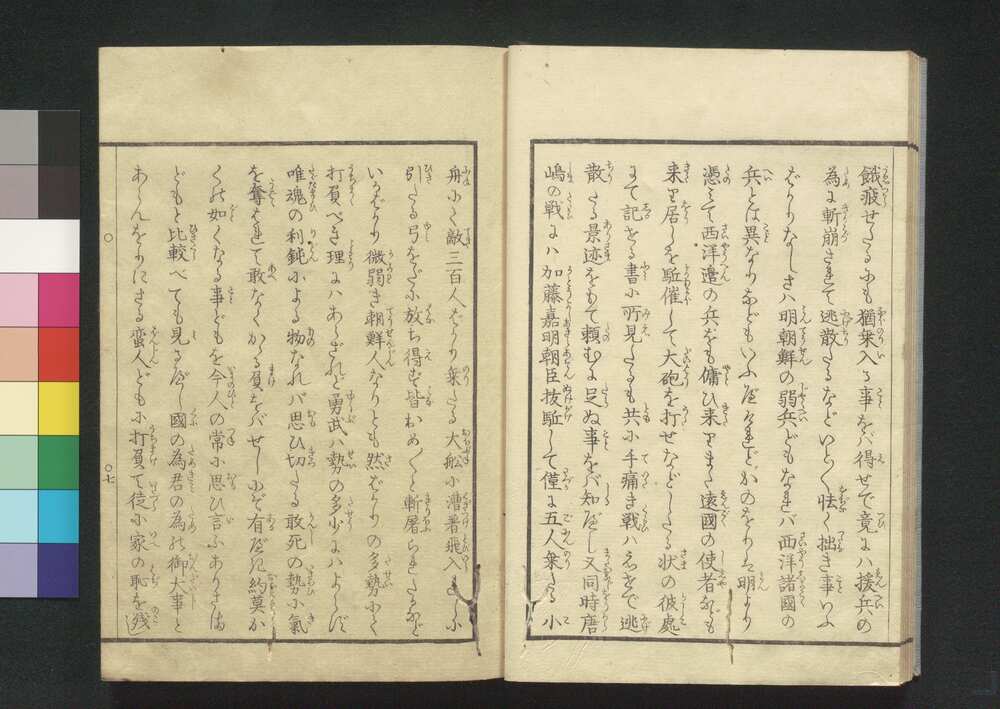 餓疲せたるにも猶乗入る事をバ得せで竟にハ援兵の
為に斬崩されて逃散たるなどいとく怯く拙き事いふ
ばかりなしさハ明朝鮮の弱兵どもなれバ西洋諸國の
兵とは異なりなどもいふべけれどかのをりしも明より
憑みて西洋邉の兵をも傭ひ来りまた遠國の使者なども
来り居しを駈催して大砲を打せなどしたる状の彼處
にて記せる書に所見たるも共に手痛き戦ハえせで逃
散たる景迹をもて頼むに足ぬ事をバ知べし又同時唐
嶋の戦にハ加藤嘉明朝臣抜駈して僅に五人乗たる小
舟にて敵三百人ばかり乗たる大舩に漕著飛入しに
引たる弓をだに放ち得ず皆おめ〳〵と斬屠られたるなど
いかばかり微弱き朝鮮人なりとも然ばかりの多勢にて
打負べき理にハあらざれど勇武ハ勢の多少にハよらず
唯魂の利鈍による物なれバ思ひ切たる敢死の勢に氣
を奪はれて敢なくかゝる負をバせしにぞ有べき約莫か
くの如くなる事どもを今人の常に思ひ言ふありさま
どもと比較べても見るべし國の為君の為の御大事と
あらんをりにさる蛮人どもに打負て徒に家の恥を残
〇
〇七